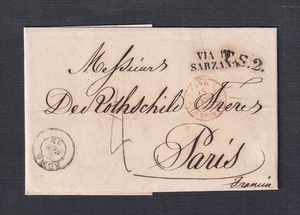 VIA DI
SARZANA
T.S.2.
Messieurs
De Rothschild Frères
Paris
Francia
ROMA